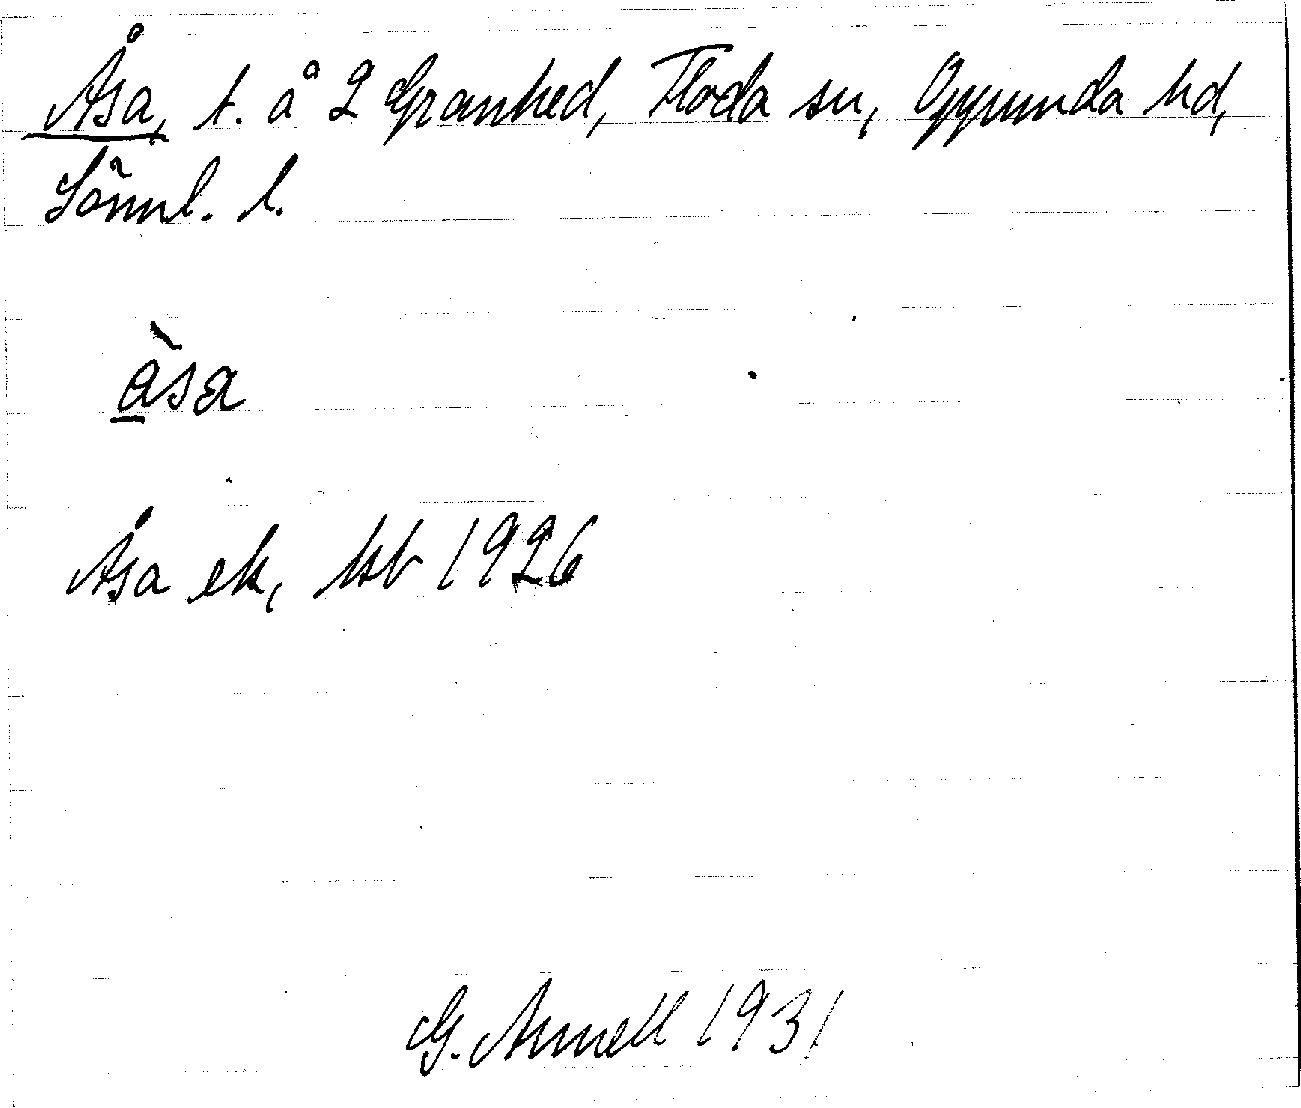 Åsa, t. å 2 Granhed, Floda sn, Oppunda hd,
Sörml. l.
åsa
Åsa ek, hsb 1926
G. Arnell 1931